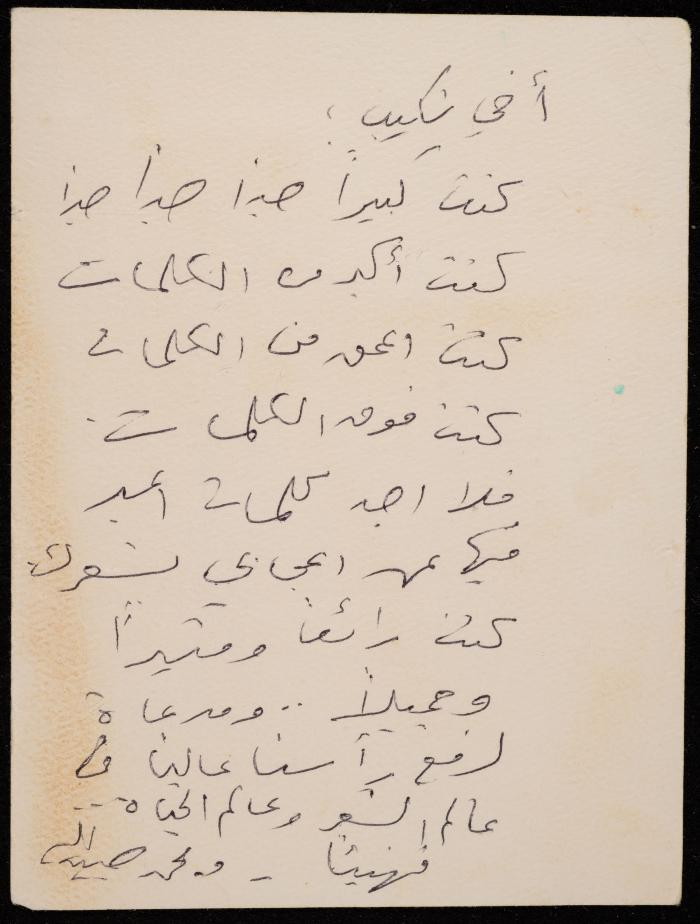 أخي شكيب؛
كنت كبيراً جداً جداً جداً
كنت أكبر من الكلمات
كنت اعمق من الكلمات
كنت فوق الكلمات.
فلا اجد كلمات اعبر
فيها عن اعجابي بشعرك
كنت رائعاً ومثيراً
وجميلاً .. ومدعاة
لرفع رأسنا عالياً في
عالم الشعر وعالم الحياة ..
فهنيئاً -